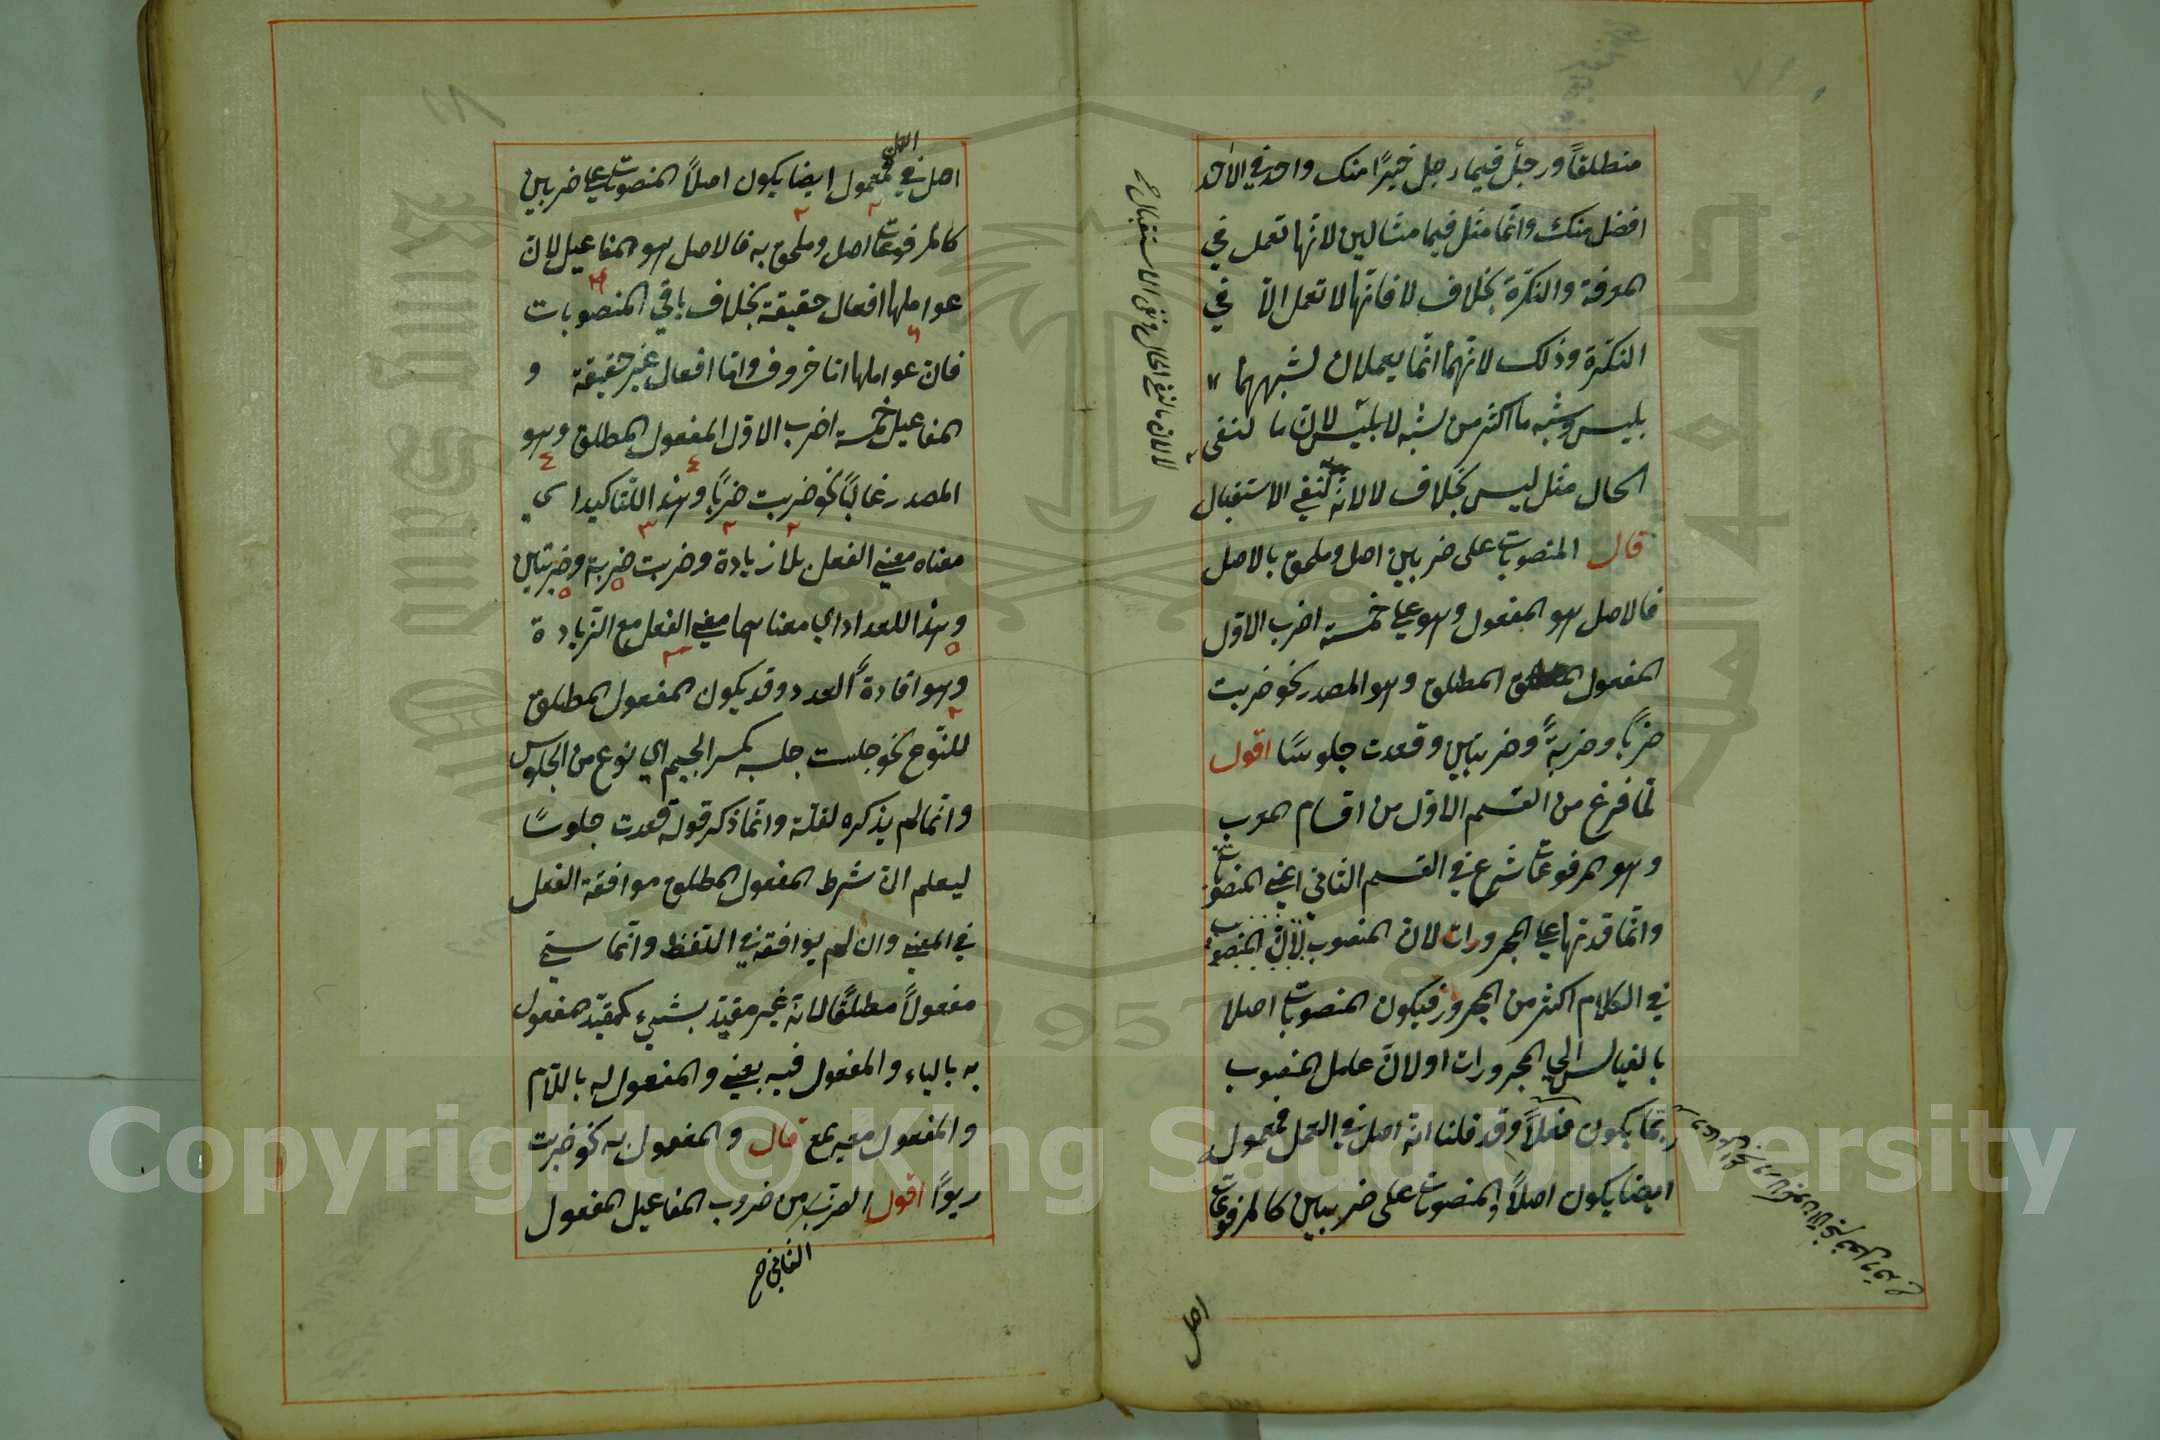 منطلقاً ورجل فيما رجل خيرًا منك واحد في الاحد
افضل منك وانّما مثل فيما مثالين لانها تعمل في
المعرفة والنكرة بخلاف لا فانّها لا تعمل الّا في
النكرة وذلك لانّهما انّما يعملان لشبههما
بليس وشبه ما اكثر من لشبه لا بليس لانّ ما لنفي
الحال مثل ليس بخلاف لا لانّه لنفي الاستقبال
قال المنصوبات على ضربين اصل وملحق بالاصل
فالاصل هو المفعول وهو على خمسة اضرب الاوّل
المفعول المطلق وهو المصدر نحو ضربت
ضربًا وضربةً وضربتين وقعدت جلوسًا اقول
لمّا فرغ من القسم الاوّل من اقسام المعرب
وهو المرفوعات شرع في القسم الثاني اعني المنصوبات
وانّما قدمها على المجرورات لان المنصوب لان المنصوب
في الكلام اكثر من المجرور فيكون المنصوبات اصلا
بالقياس الي المجرورات او لانّ عامل المنصوب
ربّما يكون فعلاً وقد قلنا انّه اصل في العمل فمعموله
ايضا يكون اصلاً والمنصوبات على ضربين كالمرفوعات
لا لانّ ما لنفي الحال ونفي الاستقبال
اصل
العمل
اصل في فمعموله ايضا يكون اصلاً المنصوبات على ضربين
كالمرفوعات اصل وملحق به فالاصل هو المفاعيل لان
عواملها افعال حقيقة بخلاف باقي المنصوبات
فانّ عواملها امّا حروف وامّا افعال غير حقيقة و
المفاعيل خمسة اضرب الاوّل المفعول المطلق وهو
المصدر غالبًا نحو ضربت ضربًا وهذا للتّاكيد اي
معناه معني الفعل بلا زيادة وضربت ضربة وضربتين
وهذا للعدد اي معناهما معني الفعل مع الزّيادة
وهو افادة العدد وقد يكون المفعول المطلق
للنّوع نحو جلست جلسة بكسر الجيم اي نوع من الجلوس
وانّما لم يذكره لقلته وانّما ذكر قوله قعدت جلوسًا
ليعلم انّ شرط المفعول المطلق موافقة الفعل
في المعني وان لم يوافقه في اللّفظ وانّما سمّي
مفعولاً مطلقًا لانّه غير مقيّد بشيء كمقيّد المفعول
به بالباء والمفعول فيه بفي والمفعول له باللّام
والمفعول معه بمع قال والمفعول به نحو ضربت
زيدًا اقول الضرب من ضروب المفاعيل المفعول
الثاني صح
Copyright © King Saud University
1957